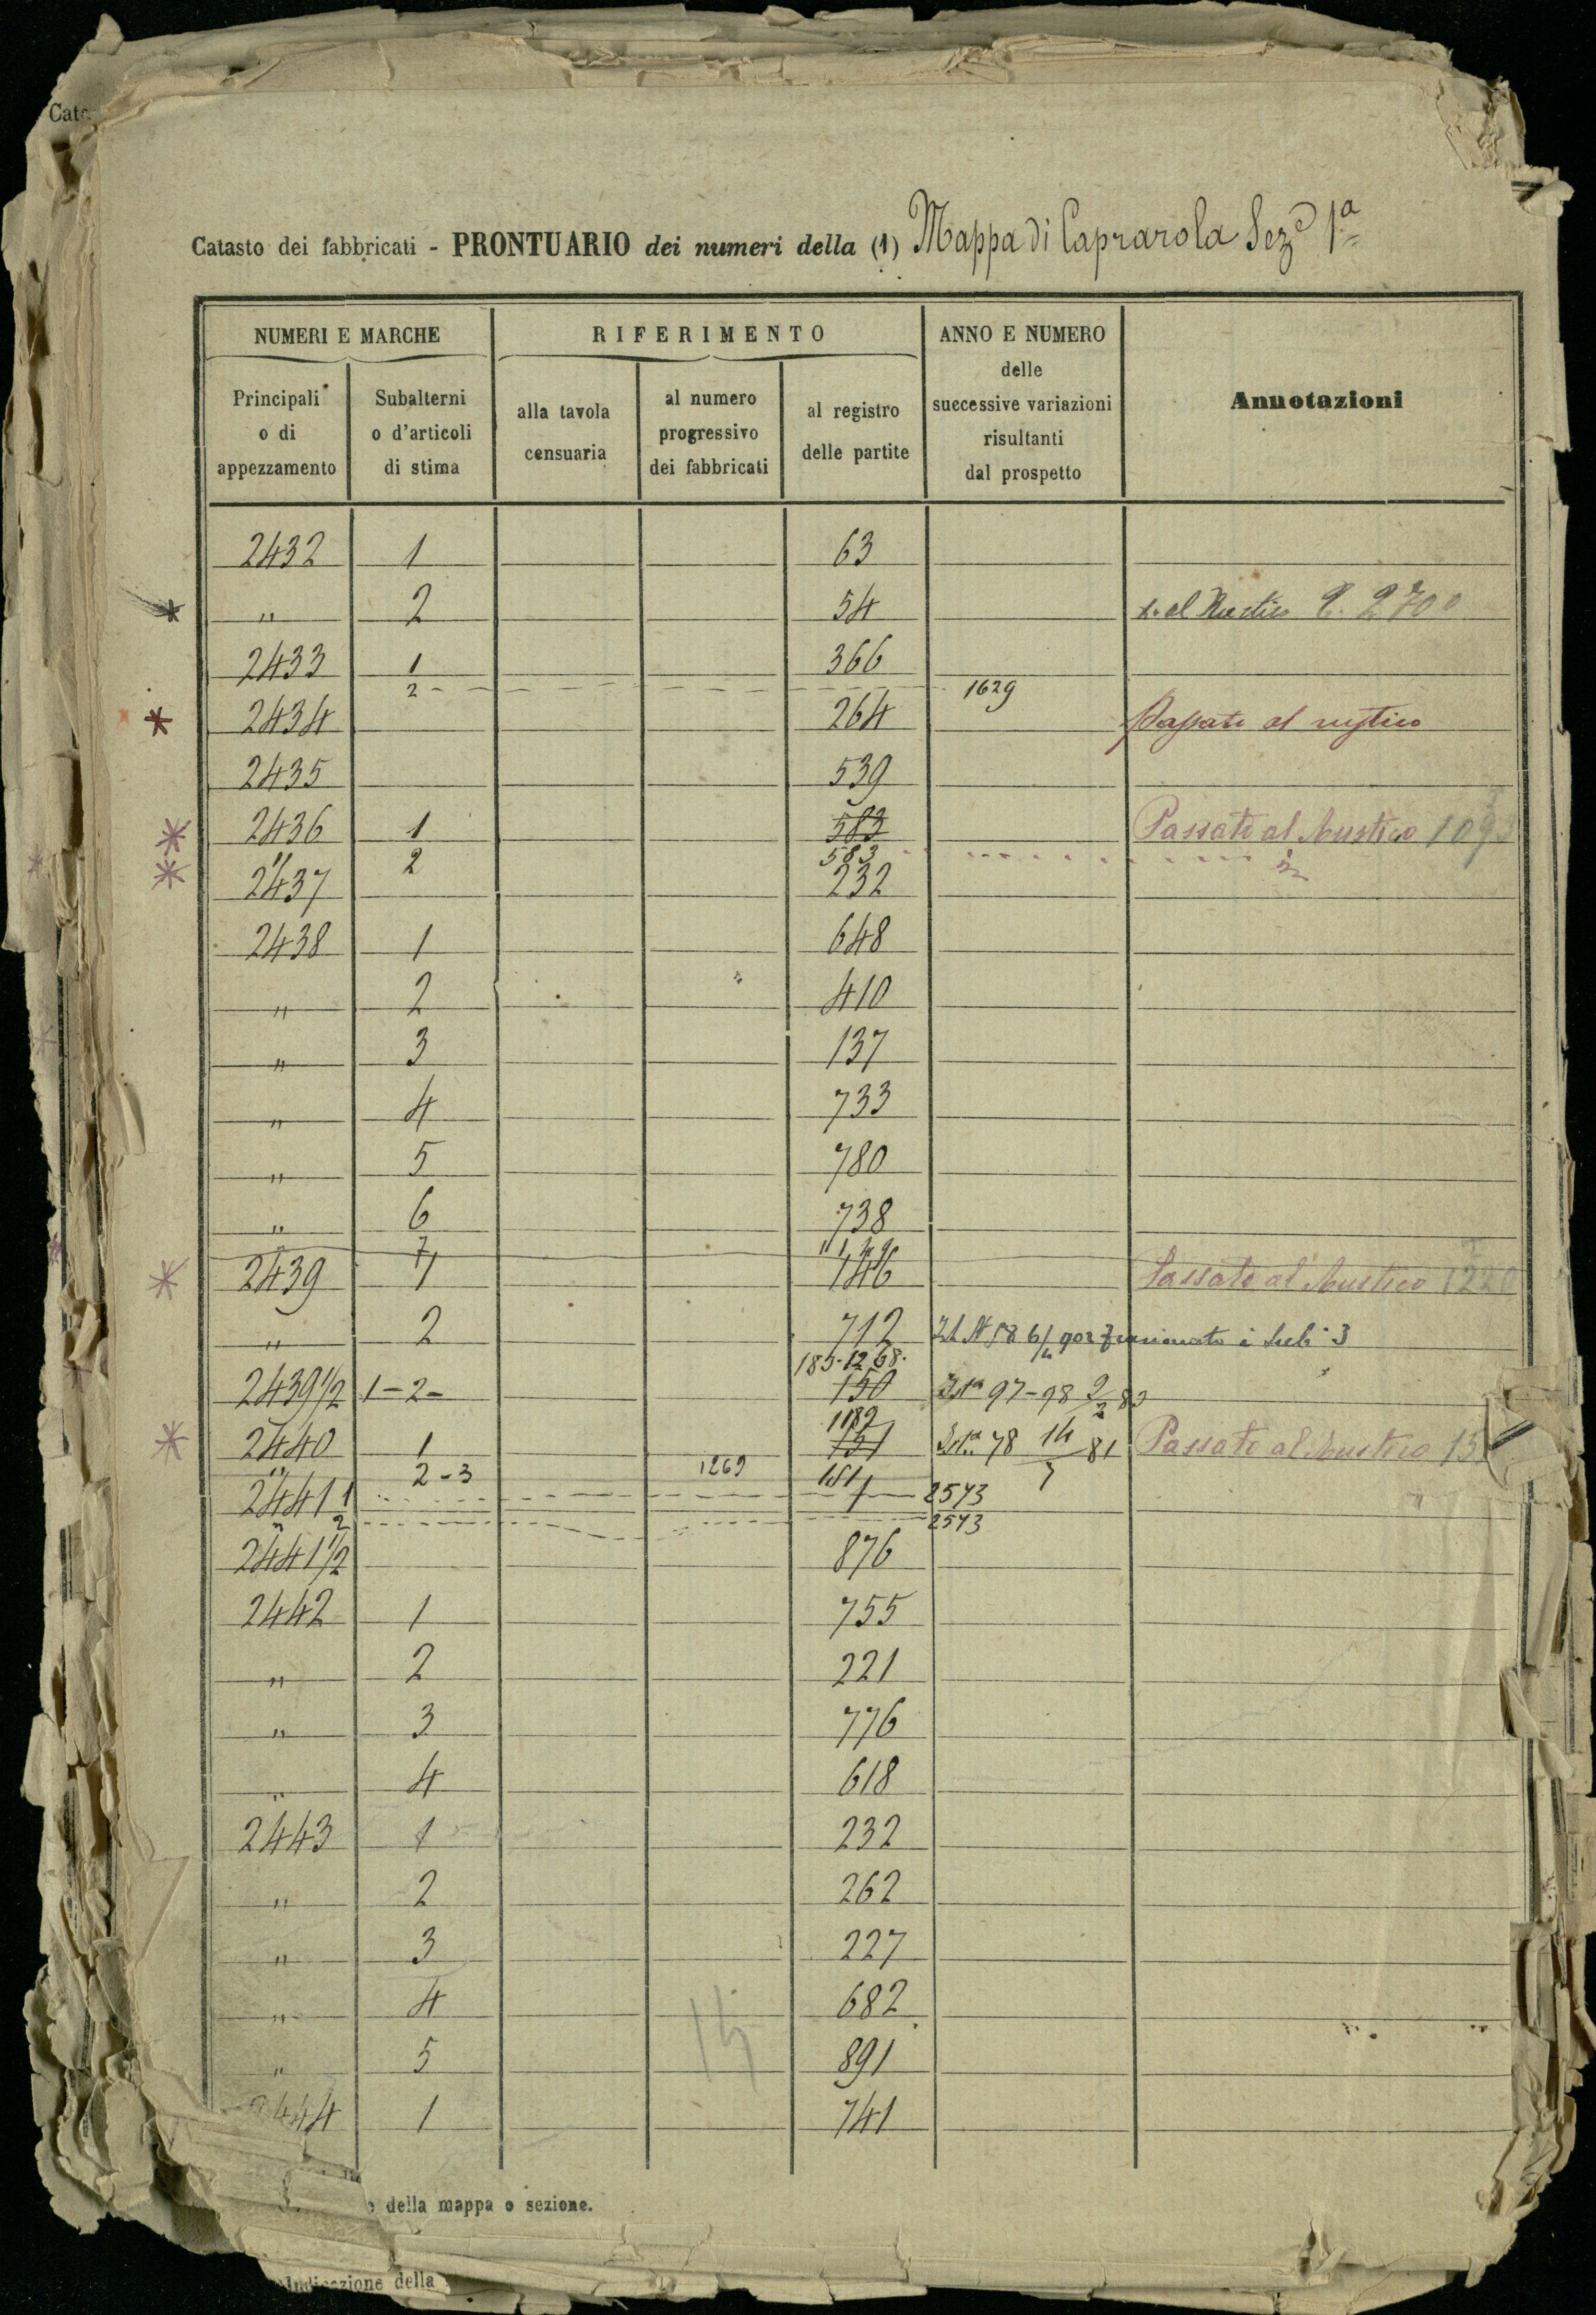 Cato
Catasto dei fabbricati - PRONTUARIO dei numeri della (1) Mappa di Caprarola Sez.e 1a
NUMERI E MARCHE RIFERIMENTO ANNO E NUMERO delle successive variazioni risultanti dal prospetto Annotazioni
Principali o di appezzamento Subalterni o d'articoli di stima alla tavola censuaria al numero progressivo dei fabbricati al registro delle partite
2432 1 63
" 2 54 al Rustico 2700
2433 1 366
2 1629
2434 264 Passato al rustico
2435 539
2436 1 583 Passato al Rustico 1093
" 2 583
2437 232
2438 1 648
" 2 410
" 3 137
" 4 733
" 5 780
" 6 738
" 7
2439 1 146 Passato al Rustico 1220
" 2 712 Sub 3
185-1268
2439 1/2 1-2- 150 97-98
1182
2440 1 151 78 14/7 81 Passato al Rustico 15
" 2-3 1269 151
2441 1 1 2573
" 2 2573
2441 1/2 876
2442 1 755
" 2 221
" 3 776
" 4 618
2443 1 232
" 2 262
" 3 227
" 4 682
15
" 5 891
2444 1 741
e della mappa o sezione.
Indicazione della